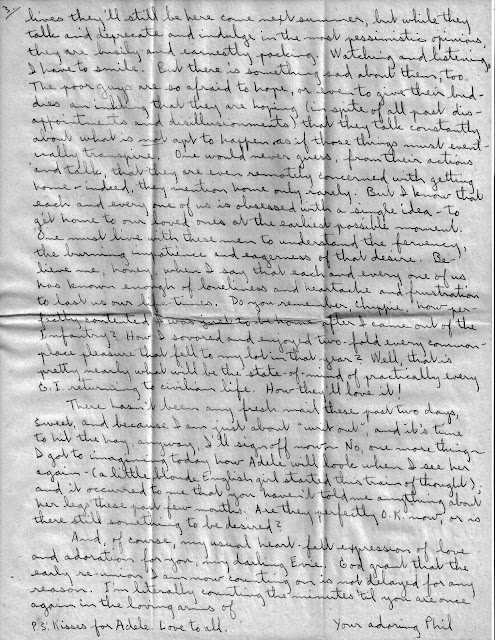 3/
lines they'll still be here come next summer, but while they
talk and and indulge in the most pessimistic opinions,
they are busily and earnestly packing. Watching and listening,
I have to smile. But there is something sad about them, too.
The poor guys are so afraid to hope, or even to give their bud-
dies an inkling that they are hoping (in spite of all past dis-
appointments and disillusionments) that they talk constantly
about what is not apt to happen, as if those things must event-
ually transpire. One would never guess, from their actions
and talk, that they are even remotely concerned with getting
home - indeed, they mention home only rarely. But I know that
each and every one of us is obsessed with a single idea - to
get home to our loved ones at the earliest possible moment.
One must live with these men to understand the fervency,
the burning impatience and eagerness of that desire. Be-
lieve me, honey, when I say that each and every one of us
has known enough of loneliness and heartache and frustration
to last us our life-times. Do you remember, Chippie, how per-
fectly contented I was just to be home after I came out of the
Infantry? How I savored and enjoyed two-fold every common-
place pleasure that fell to my lot in that year? Well, that is
pretty nearly what will be the state-of-mind of practically every
G.I. returning to civilian life. How they'll love it!
There hasn't been any fresh mail these past two days,
sweet, and because I am just about "writ out", and it's time
to hit the hay, anyway, I'll sign off now. No, one more thing -
I got to imagining today how Adele will look when I see her
again - (a little blonde English girl started this train of thought);
and it occurred to me that you haven't told me anything about
her legs these past few months. Are they perfectly O.K. now, or is
there still something to be desired?
And, of course, my usual heart-felt expression of love
and adoration for you, my darling Evie. God grant that the
early re-union I am now counting on is not delayed for any
reason. I'm literally counting the minutes 'til you are once
again in the loving arms of
P.S. Kisses for Adele. Love to all. Your adoring Phil